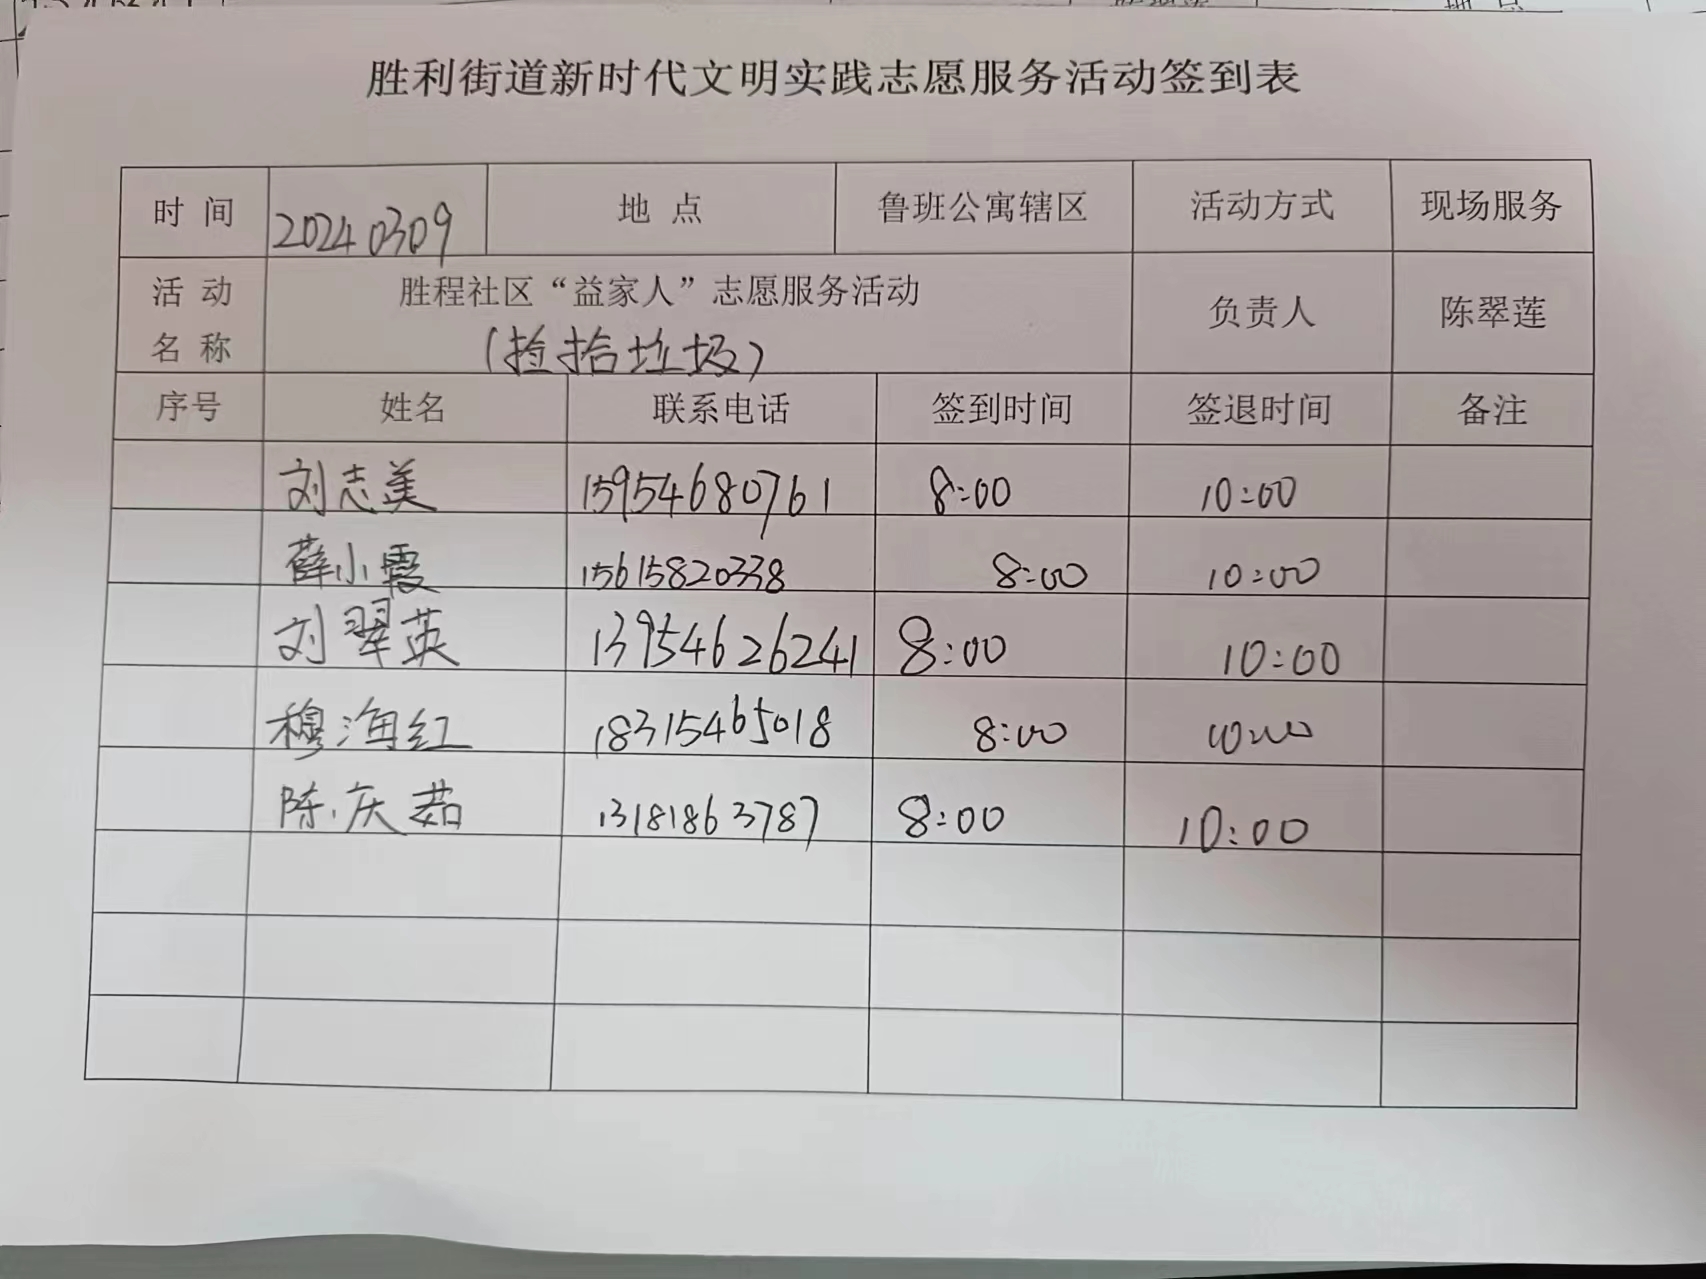 胜利街道新时代文明实践志愿服务活动签到表
时间 20240309 地点 鲁班公寓辖区 活动方式 现场服务
活动名称 胜程社区“益家人”志愿服务活动 负责人 陈翠莲
(捡拾垃圾)
序号 姓名 联系电话 签到时间 签退时间 备注
刘志美 15954680761 8:00 10:00
薛小霞 15615820338 8:00 10:00
刘翠英 13954626241 8:00 10:00
穆海红 18315465018 8:00 10:00
陈庆茹 13181863787 8:00 10:00